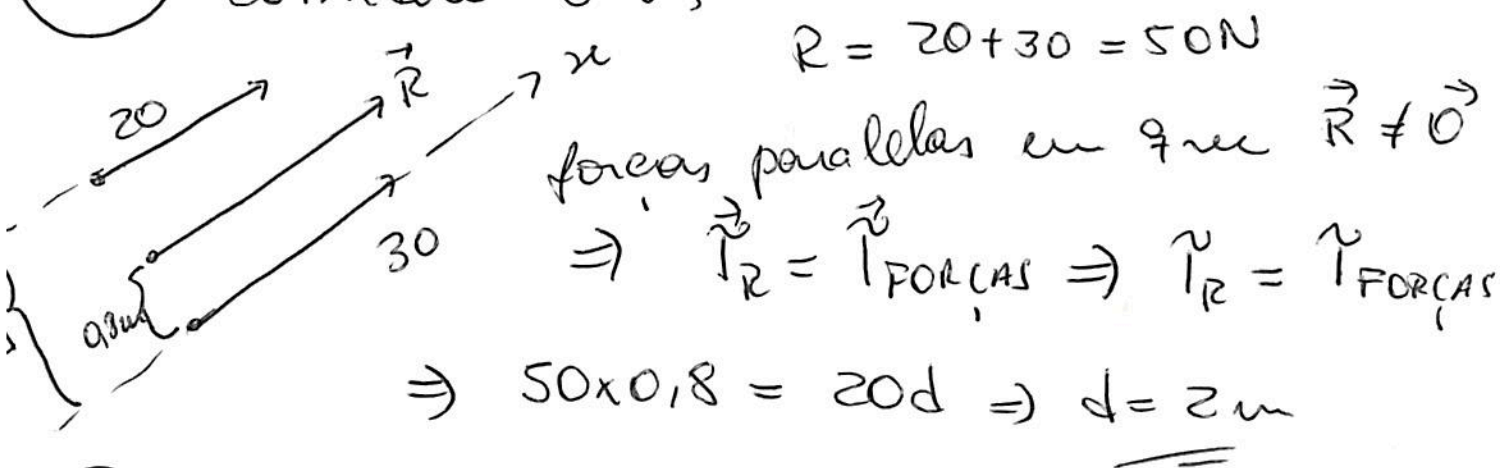 R = 20+30 = 50N
x
R⃗
20
forças paralelas em que R⃗ ≠ 0⃗
30
⇒ τ⃗R = τ⃗FORÇAS ⇒ τR = τFORÇAS
0,8m
⇒ 50x0,8 = 20d ⇒ d = 2m